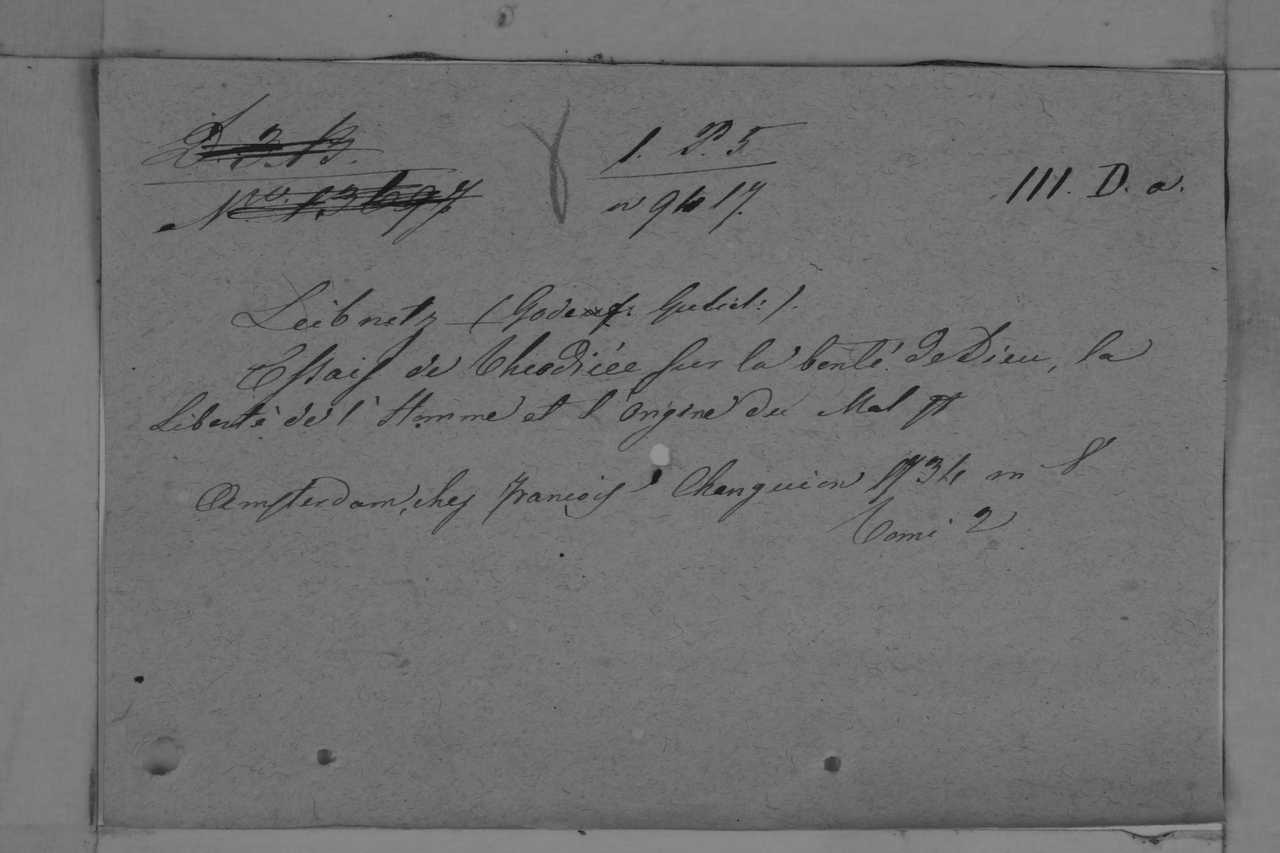 D. 3. 13.
No. 13697
1. P. 5
n 9417.
III. D. a.
Leibnetz (Godef: Guliel:).
Essais de Theodicée sur la bonté de Dieu, la
Liberté de l'Homme et l'origine du Mal
Amsterdam, chez François Changuion 1734 in 8°
Tomi 2